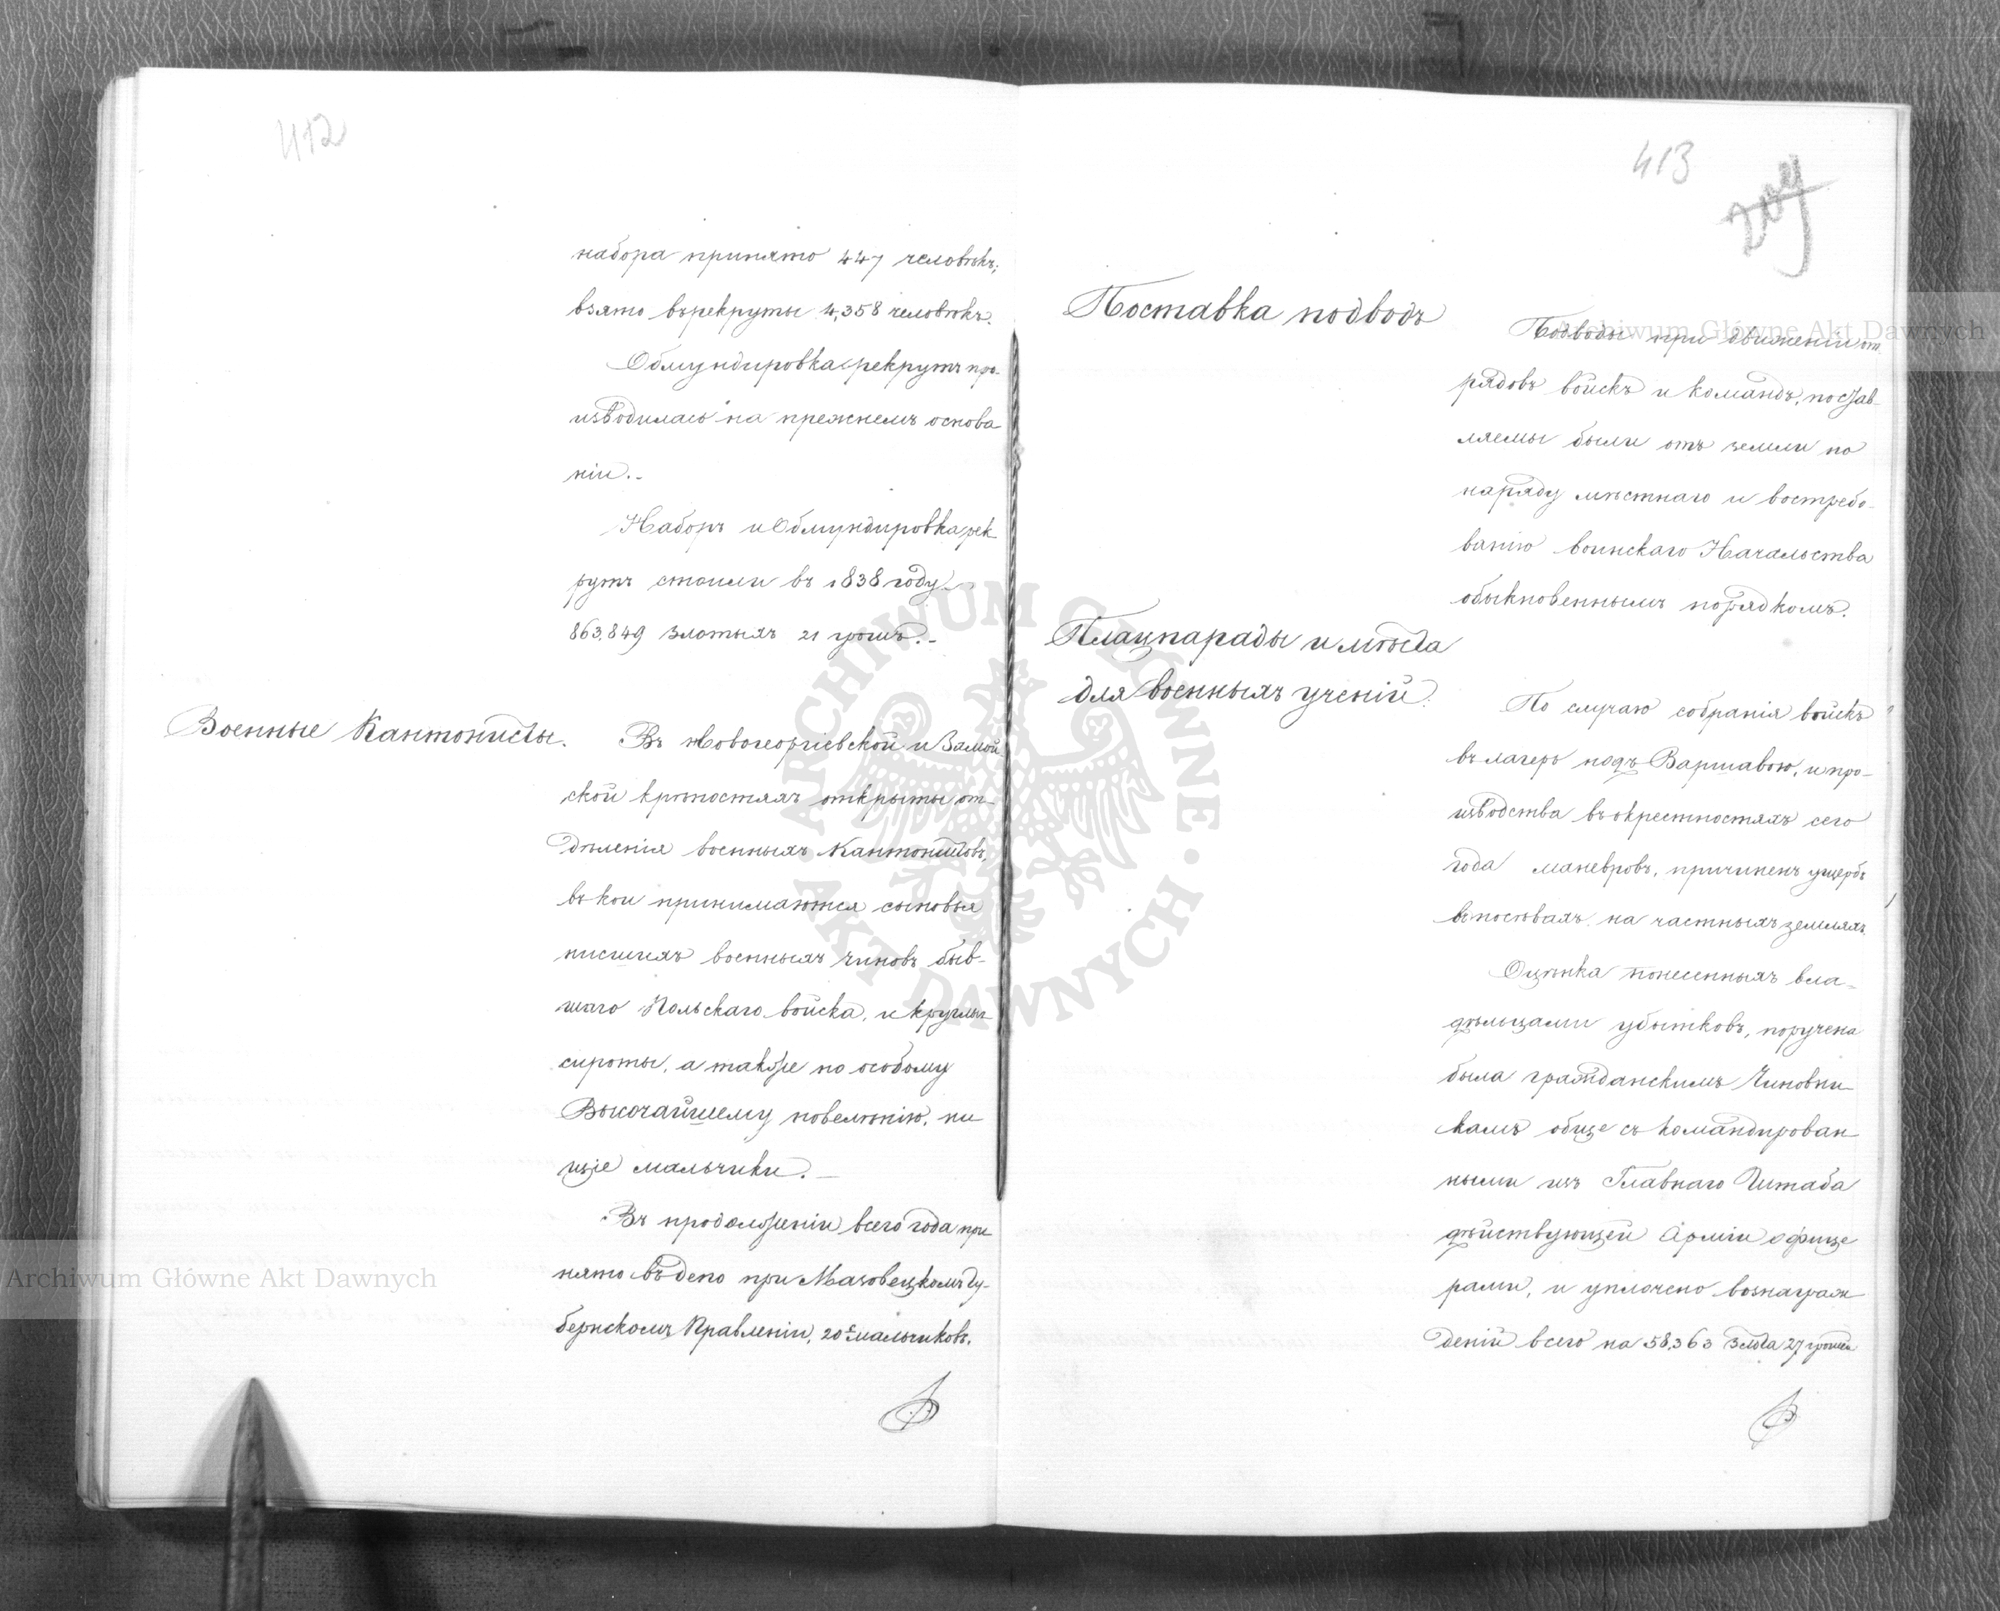 412
набора принято 447 человѣкъ;
взято въ рекруты 4,358 человѣкъ.
Обмундировка рекрутъ про-
изводилась на прежнемъ основа
ніи.-
Наборъ и Обмундировка рек
рутъ стоили въ 1838 году.
863,849 злотыхъ 21 грошъ.-
Военные Кантонисты.
Въ Новогеоргіевской и Замой
ской крѣпостяхъ открыты от-
дѣленія военныхъ Кантонистовъ,
въ кои принимаются сыновья
нисшихъ военныхъ чиновъ быв-
шаго Польскаго войска, и круглыя
сироты, а также по особому
Высочайшему повелѣнію, ни
щіе мальчики.-
Въ продолженіи всего года при
нято въ депо при Мазовецкомъ Гу-
бернскомъ Правленіи, 20ть мальчиковъ.
413
204
Поставка подводъ
Подводы при движеніи от
рядовъ войскъ и командъ, постав-
ляемы были отъ земли по
наряду мѣстнаго и востребо-
ванію воинскаго Начальства
обыкновеннымъ порядкомъ.
Плацпарады и мѣста
для военныхъ ученій.
По случаю собранія войскъ
въ лагерь подъ Варшавою, и про-
изводства въ окрестностяхъ сего
года маневровъ, причиненъ ущербъ
въ посѣвахъ на частныхъ земляхъ.
Оцѣнка понесенныхъ вла-
дѣльцами убытковъ, поручена
была гражданскимъ Чиновни
камъ обще съ командирован
ными изъ Главнаго Штаба
дѣйствующей Арміи офице
рами, и уплочено вознаграж
деній всего на 58,363 злота 27 грошей
Archiwum Główne Akt Dawnych
Archiwum Główne Akt Dawnych
ARCHIWUM GŁÓWNE · AKT DAWNYCH ·